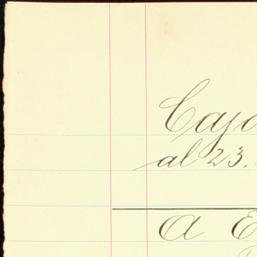 Caja
al 23.
A E